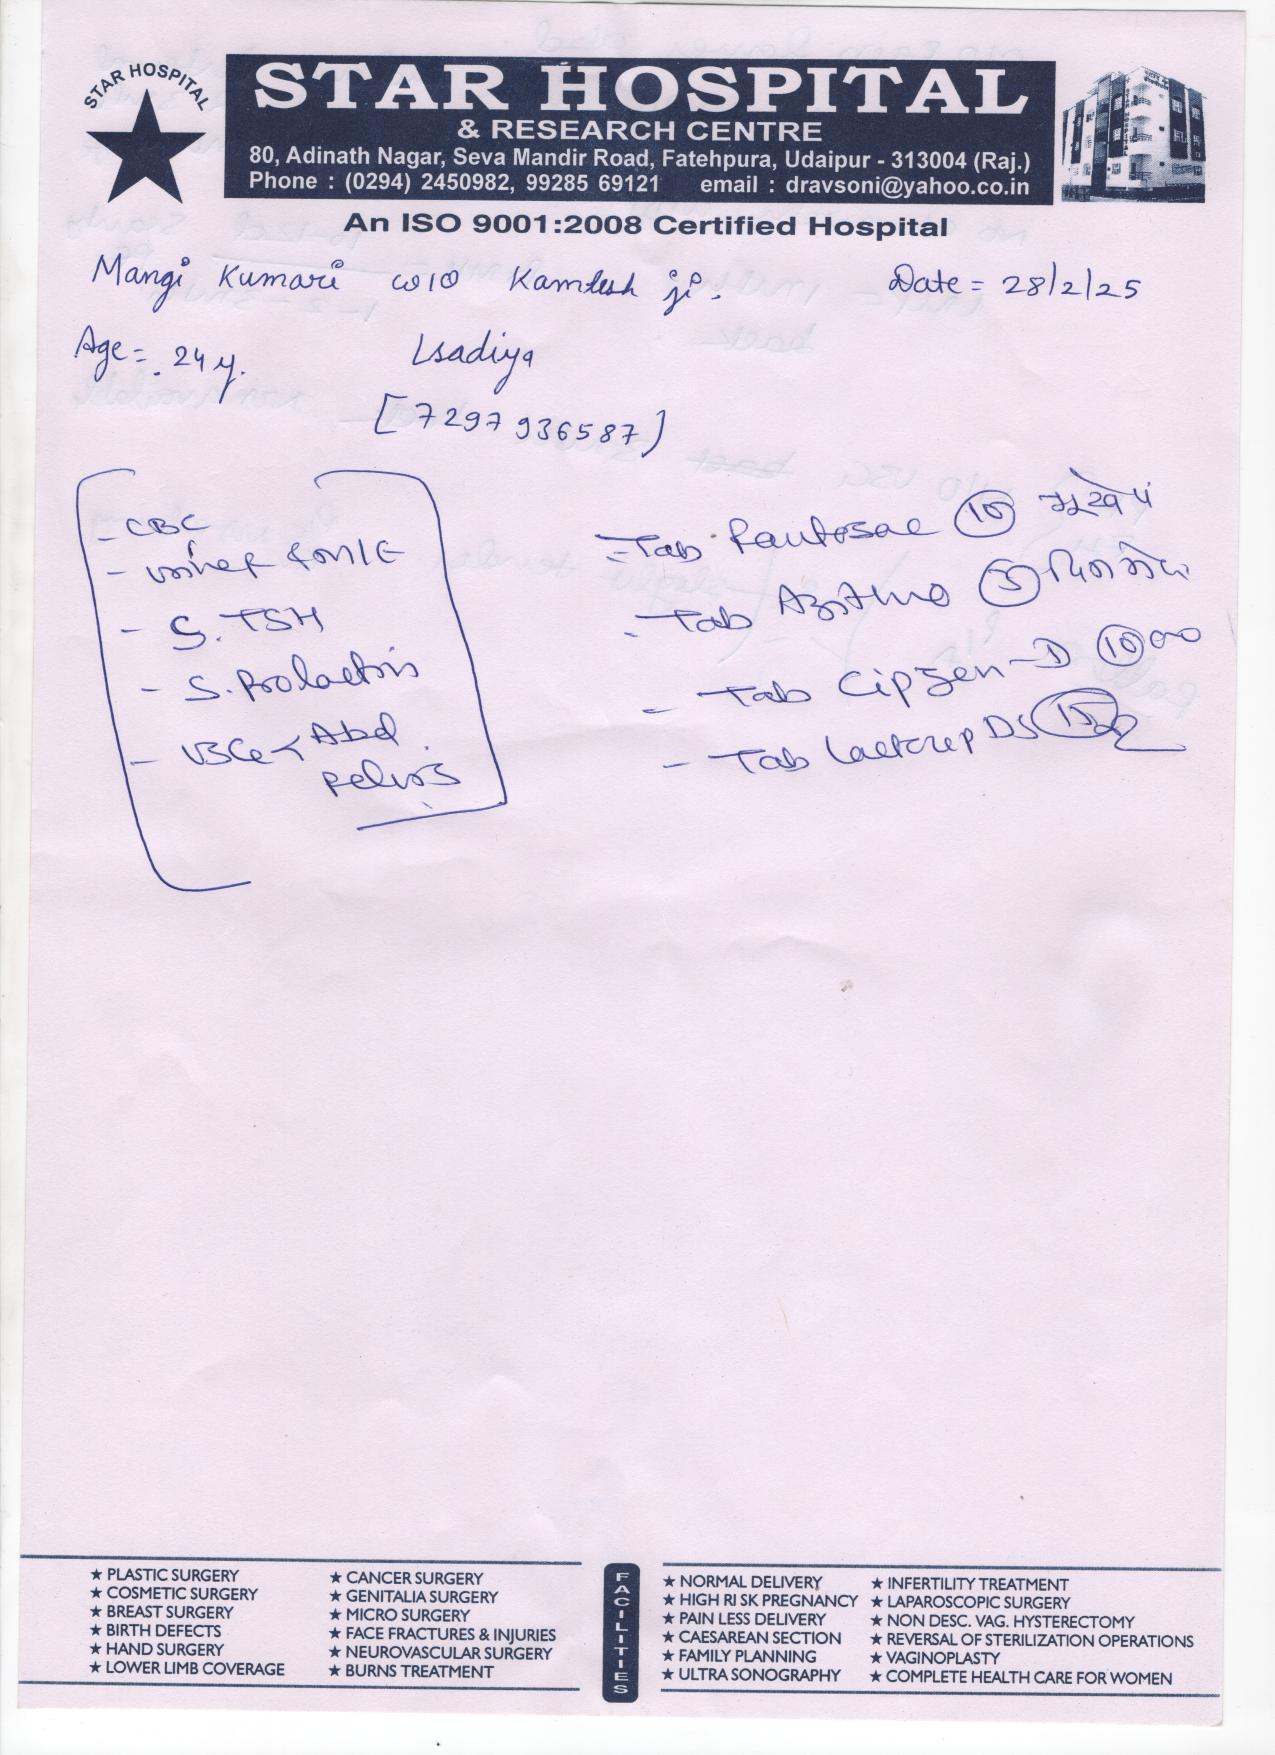 STAR HOSPITAL
STAR HOSPITAL
& RESEARCH CENTRE
80, Adinath Nagar, Seva Mandir Road, Fatehpura, Udaipur - 313004 (Raj.)
Phone : (0294) 2450982, 99285 69121 email : dravsoni@yahoo.co.in
An ISO 9001:2008 Certified Hospital
Mangi Kumari w/o Kamlesh ji. Date = 28/2/25
Age = 24 y. Isadiya
[7297936587]
- CBC
- Urine R &M/E
- S.TSH
- S. Prolactin
- USG < Abd.
Pelvis
- Tab Pantosac (10)
- Tab Azithro (5)
- Tab Cipzen-D (10)
- Tab DS (15)
FACILITIES
★ PLASTIC SURGERY
★ COSMETIC SURGERY
★ BREAST SURGERY
★ BIRTH DEFECTS
★ HAND SURGERY
★ LOWER LIMB COVERAGE
★ CANCER SURGERY
★ GENITALIA SURGERY
★ MICRO SURGERY
★ FACE FRACTURES & INJURIES
★ NEUROVASCULAR SURGERY
★ BURNS TREATMENT
★ NORMAL DELIVERY
★ HIGH RI SK PREGNANCY
★ PAIN LESS DELIVERY
★ CAESAREAN SECTION
★ FAMILY PLANNING
★ ULTRA SONOGRAPHY
★ INFERTILITY TREATMENT
★ LAPAROSCOPIC SURGERY
★ NON DESC. VAG. HYSTERECTOMY
★ REVERSAL OF STERILIZATION OPERATIONS
★ VAGINOPLASTY
★ COMPLETE HEALTH CARE FOR WOMEN